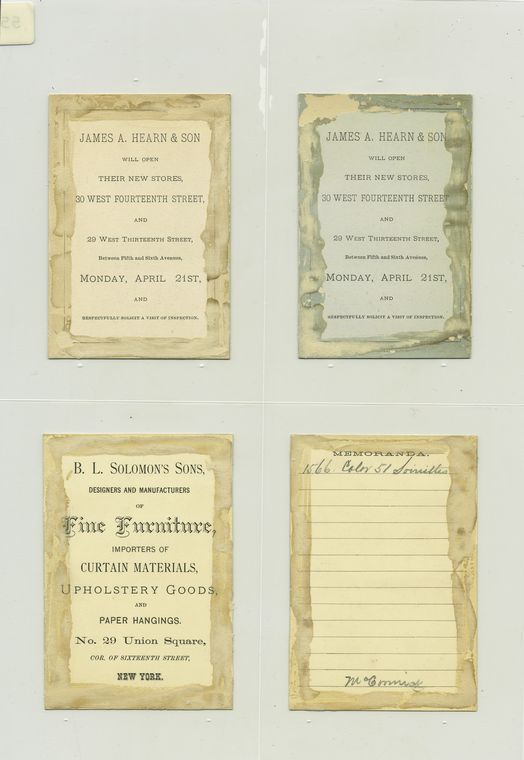 55
JAMES A. HEARN & SON
WILL OPEN
THEIR NEW STORES,
30 WEST FOURTEENTH STREET,
AND
29 WEST THIRTEENTH STREET,
Between Fifth and Sixth Avenues,
MONDAY, APRIL 21ST,
AND
RESPECTFULLY SOLICIT A VISIT OF INSPECTION.
JAMES A. HEARN & SON
WILL OPEN
THEIR NEW STORES,
30 WEST FOURTEENTH STREET,
AND
29 WEST THIRTEENTH STREET,
Between Fifth and Sixth Avenues,
MONDAY, APRIL 21ST,
AND
RESPECTFULLY SOLICIT A VISIT OF INSPECTION.
B. L. SOLOMON'S SONS,
DESIGNERS AND MANUFACTURERS
OF
Fine Furniture,
IMPORTERS OF
CURTAIN MATERIALS,
UPHOLSTERY GOODS,
AND
PAPER HANGINGS.
No. 29 Union Square,
COR. OF SIXTEENTH STREET,
NEW YORK.
MEMORANDA.
1566 Color 51